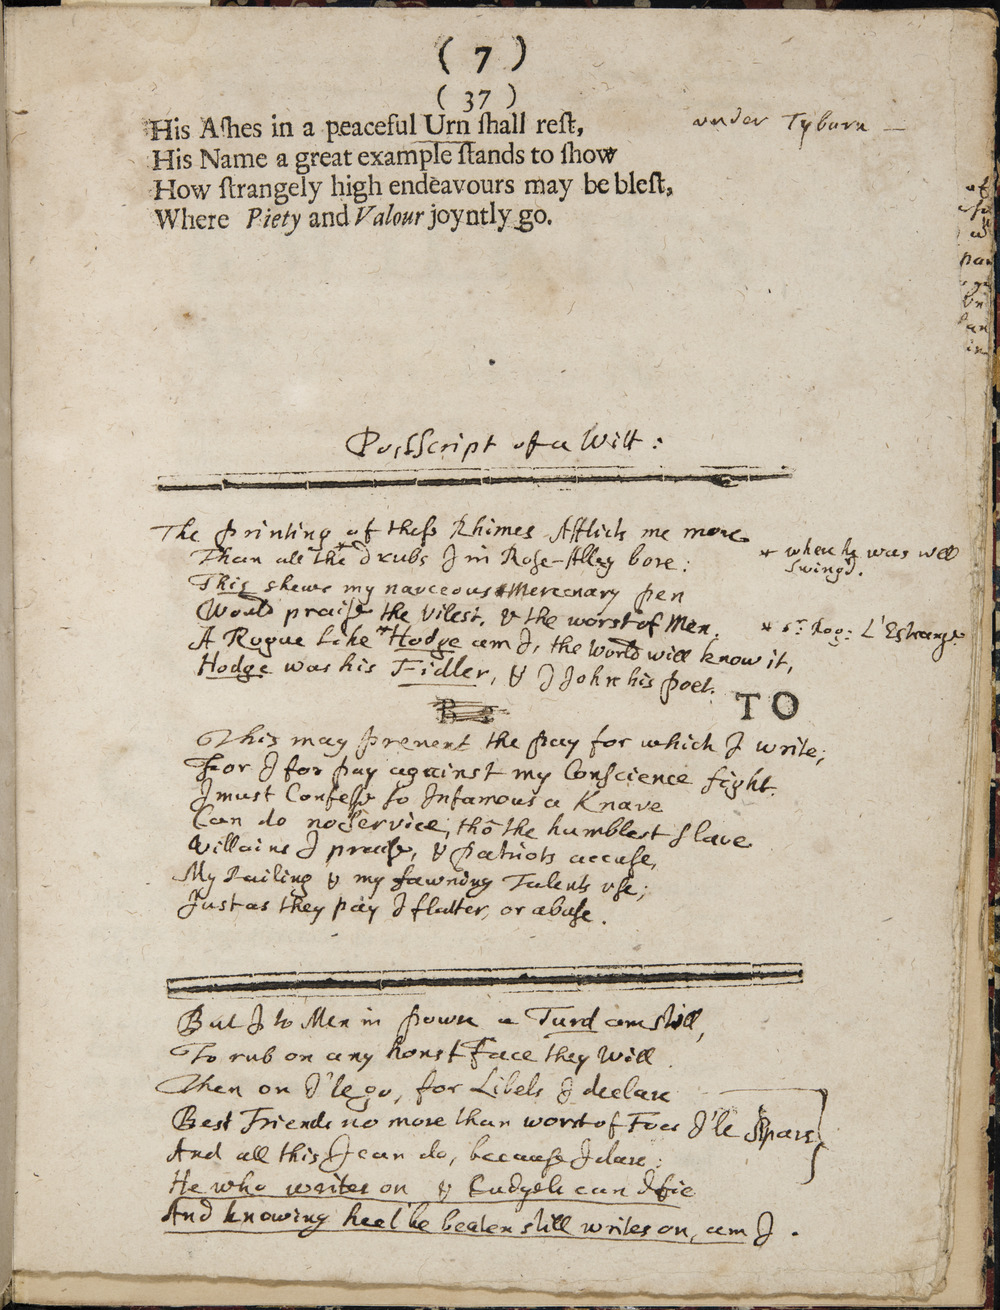 ( 7 )
( 37 )
His Aſhes in a peaceful Urn ſhall reſt, under Tyburn —
His Name a great example ſtands to ſhow
How ſtrangely high endeavours may be bleſt,
Where Piety and Valour joyntly go.
PostScript of a Witt:
The printing of theſs Rhimes Afflicts me more
Than all the * drubs I in Roſe-Alley bore: * when he was well
swing'd.
This shews my nauceous Mercenary pen
Would praiſe the vileſt, & the worst of Men.
A Rogue like * Hodge am I, the World will know it, * Sr. Rog: L'Estrange
Hodge was his Fidler, & I John his poet.
TO
This may prevent the pay for which I write;
For I for pay against my Conſcience fight.
I must Confeſs so Infamous a Knave
Can do no Service, thô the humblest slave
Villains I praiſe, & patriots accuſe,
My Railing & my fawning Talents uſe;
Just as they pay I flatter, or abuſe.
But I to Men in power a Turd am still,
To rub on any honst Face they will
Then on I'le go, for Libels I declare
Best Friends no more than worst of Foes I'le Spare,
And all this I can do, becauſe I dare:
He who writes on & Cudgels can defie
And knowing heel be beaten still writes on, am I.